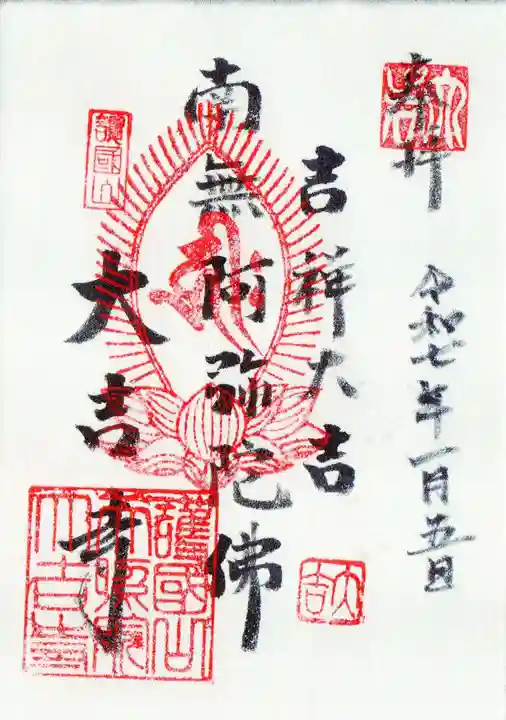 奉拝
令和七年一月五日
吉祥大吉
南無阿弥陀佛
大吉寺
護國山
大吉
護國山
大吉寺